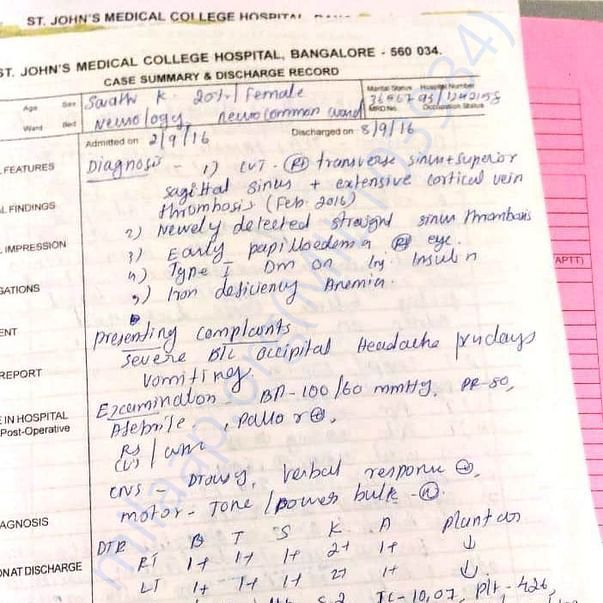 ST. JOHN'S MEDICAL COLLEGE HOSPITAL
ST. JOHN'S MEDICAL COLLEGE HOSPITAL, BANGALORE - 560 034.
CASE SUMMARY & DISCHARGE RECORD
Age Sex
K. 20 / Female
Marital Status Hospital Number
MRD No. Occupation Status
Ward Bed
Neurology, Neuro common ward
Admitted on 2/9/16 Discharged on 8/9/16
FEATURES
Diagnosis - 1) CVT - Rt transverse sinus + superior
sagittal sinus + extensive cortical vein
AL FINDINGS
thrombosis (Feb. 2016)
2) Newely detected straight sinus thrombosis
L IMPRESSION
3) Early papilloedema Rt eye.
4) Type I Dm on Inj Insulin
GATIONS
5) Iron deficiency Anemia.
APTT)
ENT
Presenting Complaints
severe B/L occipital Headache days
REPORT
Vomiting
Examination BP-100/60 mmHg, PR-80,
E IN HOSPITAL
Post-Operative
Afebrile, Pallor +,
RS
CVS /
CNS - Drowsy, Verbal response +,
motor - Tone / power bulk - N.
AGNOSIS
DTR B T S K A Plantar
ON AT DISCHARGE
RT 1+ 1+ 1+ 2+ 1+ ↓
LT 1+ 1+ 1+ 2+ 1+ ↓
TC-10,07, Plt-426,
milaap.org